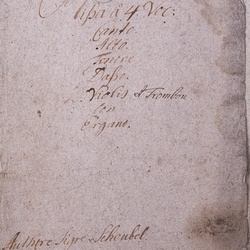 Missa à 4 Voc:
Canto
Alto
Tenore
Basso.
Violis et Trombon
Con
Organo.
Authore Sigre Scheubel.